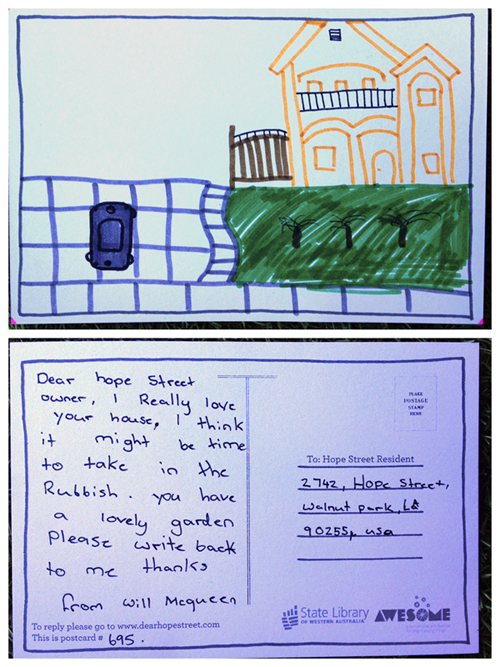 Dear hope Street
owner, I Really love
your house, I think
it might be time
to take in the
Rubbish. you have
a lovely garden
Please write back
to me thanks
from Will Mcqueen
To reply please go to www.dearhopestreet.com
This is postcard # 695.
PLACE
POSTAGE
STAMP
HERE
To: Hope Street Resident
2742, Hope Street,
Walnut park, LA
90255, usa
State Library
OF WESTERN AUSTRALIA
AWESOME